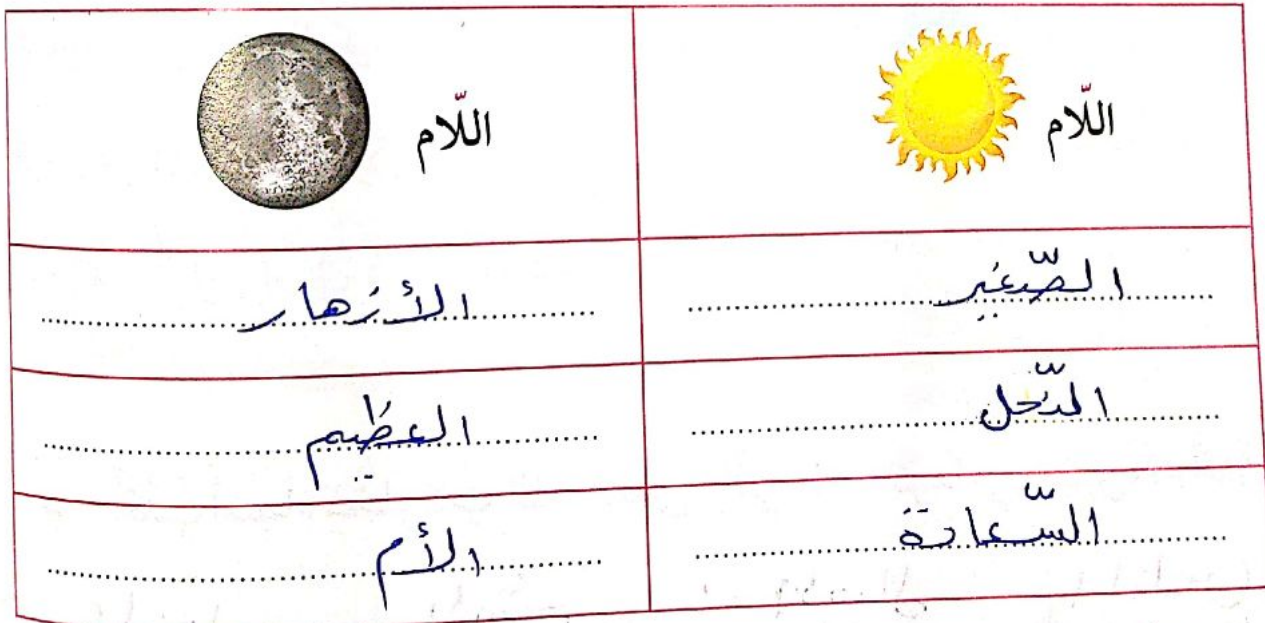 اللّام
اللّام
الصّغير
الأزهار
النّحل
العظيم
السّعادة
الأم